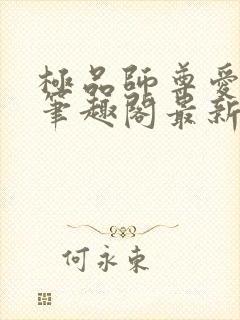 極品師尊愛
筆趣閣最新
何永東